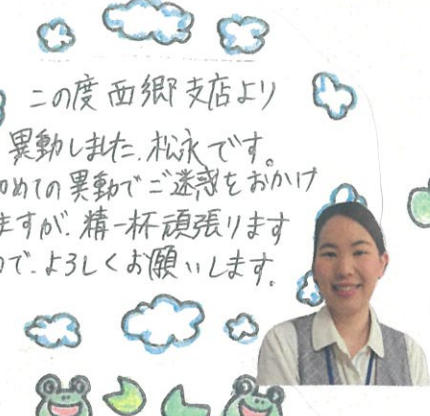 この度 西郷 支店より
異動しました、松永です。
めての異動でご迷惑をおかけ
ますが、精一杯頑張ります
で、よろしくお願いします。